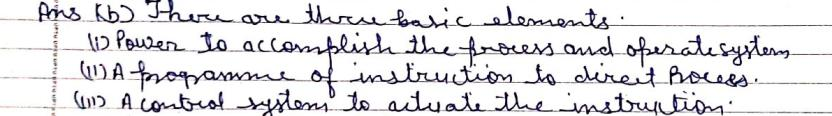 Ans (b) There are three basic elements.
(i) Power to accomplish the process and operate system
(ii) A programme of instruction to direct Process.
(iii) A control system to actuate the instruction.